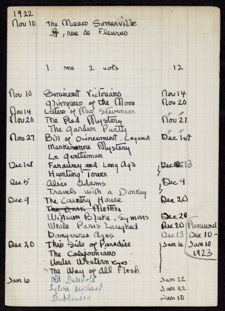 1922
Nov 10 The Misses Somerville
, rue de Fleurus
1 mo 2 vols 12
Nov 10 Eminent Victorians Nov 14
Glimpses of the Moon Nov 20
Nov 14 Letters of Mrs Stevenson
Nov 20 The Red Mystery Nov 27
The Garden Party " "
Nov 27 Bill of Divorcement Dec 1st
Mystery
Le gentleman
Dec 1st Faraway and Long Ago Dec
Hunting Tower
Dec 5 Alice Adams Dec 9
Travels with a Donkey
Dec 9 The Country House Dec 20
The Dark Mother
William Blake, Symons Dec 20
While Paris Laughed Dec 20
Dangerous Ages Dec 13 Dec 10 -
Dec 20 This Side of Paradise Jan 10 Jan 10
The Californians 1923
Under Western Eyes
The Way of All Flesh
Jan 10 Jan 22
Jan 22
Dubliners Jan 10